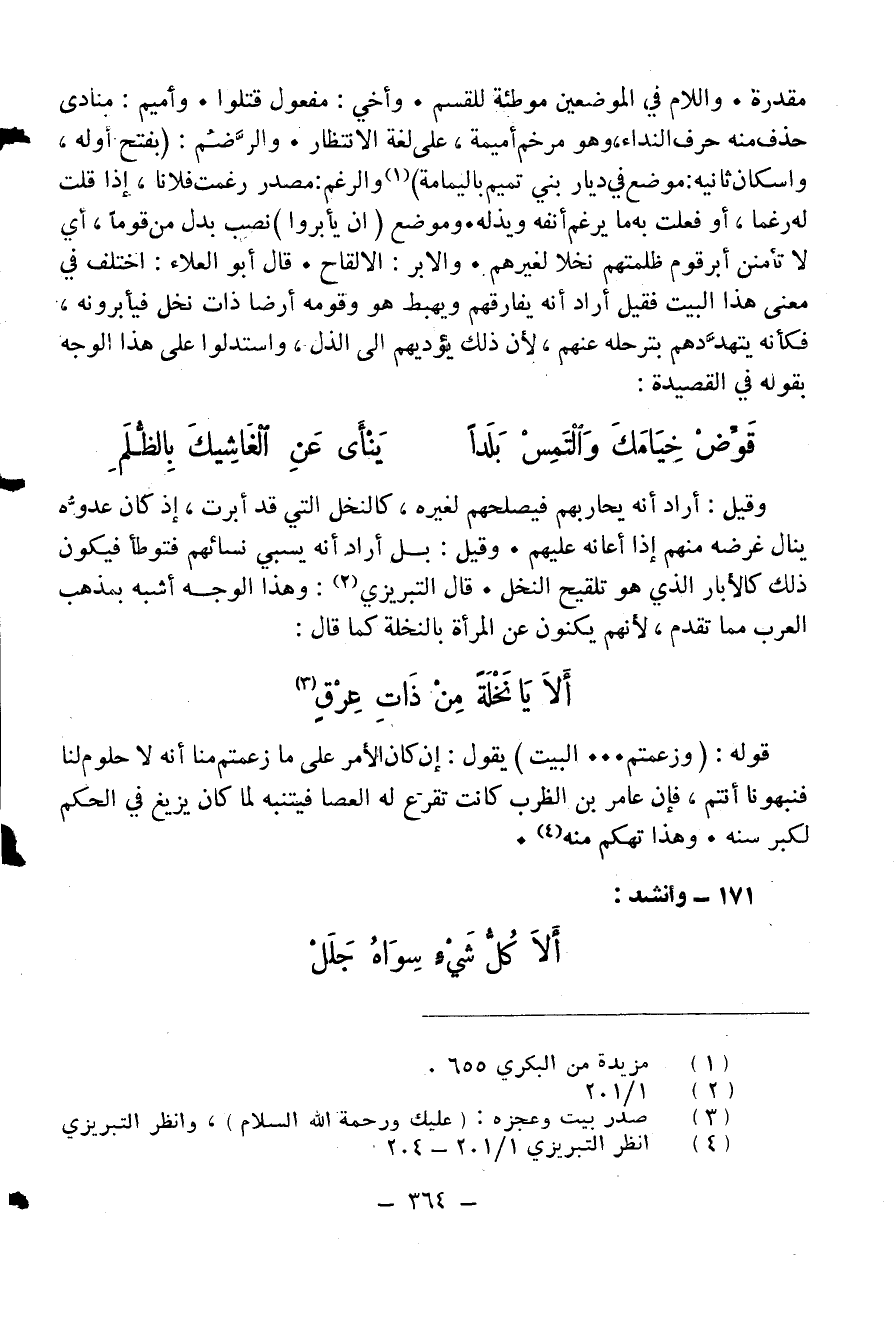 مقدرة • واللام في الموضعين موطئة للقسم • وأخي : مفعول قتلوا • وأميم : منادى
حذف منه حرف النداء، وهو مرخم أميمة ، على لغة الانتظار • والرَّضم : (بفتح أوله ،
واسكان ثانيه: موضع في ديار بني تميم باليمامة)(١) والرغم: مصدر رغمت فلانا ، إذا قلت
له رغما ، أو فعلت به ما يرغم أنفه ويذله • وموضع ( ان يأبروا ) نصب بدل من قوماً ، أي
لا تأمنن أبر قوم ظلمتهم نخلا لغيرهم • والابر : الالقاح • قال أبو العلاء : اختلف في
معنى هذا البيت فقيل أراد أنه يفارقهم ويهبط هو وقومه أرضا ذات نخل فيأبرونه ،
فكأنه يتهدَّدهم بترحله عنهم ، لأن ذلك يؤديهم الى الذل ، واستدلوا على هذا الوجه
بقوله في القصيدة :
قَوِّضْ خِيَامَكَ وَالْتَمِسْ بَلَداً يَنْأَى عَنِ الْغَاشِيكَ بِالظُّلَمِ
وقيل : أراد أنه يحاربهم فيصلحهم لغيره ، كالنخل التي قد أبرت ، إذ كان عدوُّه
ينال غرضه منهم إذا أعانه عليهم • وقيل : بـل أراد أنه يسبي نسائهم فتوطأ فيكون
ذلك كالأبار الذي هو تلقيح النخل • قال التبريزي(٢) : وهذا الوجـه أشبه بمذهب
العرب مما تقدم ، لأنهم يكنون عن المرأة بالنخلة كما قال :
أَلاَ يَا نَخْلَةً مِنْ ذَاتِ عِرْقٍ(٣)
قوله : ( وزعمتم ••• البيت ) يقول : إن كان الأمر على ما زعمتم منا أنه لا حلوم لنا
فنبهونا أنتم ، فإن عامر بن الظرب كانت تقرع له العصا فيتنبه لما كان يزيغ في الحكم
لكبر سنه • وهذا تهكم منه(٤) •
١٧١ – وأنشد :
أَلاَ كُلُّ شَيْءٍ سِوَاهُ جَلَلْ
(١) مزيدة من البكري ٦٥٥ .
(٢) ٢٠١/١
(٣) صدر بيت وعجزه : ( عليك ورحمة الله السلام ) ، وانظر التبريزي
(٤) انظر التبريزي ٢٠١/١ – ٢٠٤
– ٣٦٤ –